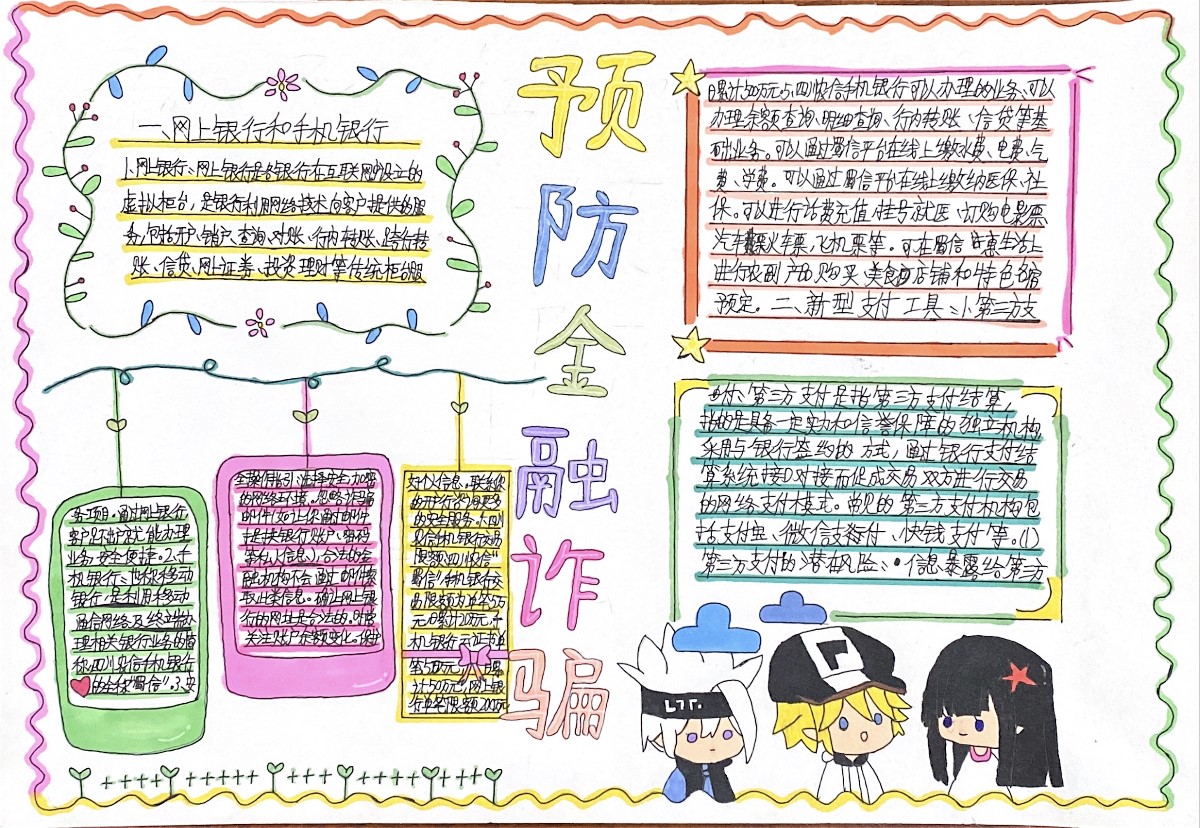 预防金融诈骗
一、网上银行和手机银行
1、网上银行:网上银行是各银行在互联网中设立的
虚拟柜台,是银行利用网络技术,向客户提供的服
务,包括开户、销户、查询、对账、行内转账、跨行转
账、信贷、网上证券、投资理财等传统柜台服
务项目。通过网上银行,
客户足不出户就能办理
业务,安全便捷。2、手
机银行:也称移动
银行,是利用移动
通信网络及终端办
理相关银行业务的简
称,四川农信手机银行
的全称“蜀信”。3、安
全操作指引:选择安全、加密
的网络环境。忽略诈骗
邮件(如让你通过邮件
提供银行账户、密码
等私人信息),合法的金
融机构不会通过邮件索
取此类信息。确认网上银
行的网址是合法的。时常
关注账户余额变化。保护
好个人信息,联系您
的开户行咨询更多
的安全服务。4、四
川农信手机银行交易
限额:四川农信“
蜀信”手机银行交
易限额为单笔5万
元,日累计20万元,手
机银行云证书单
笔50万元,日累
计50万元,网上银
行单笔限额200万元
日累计500万元。5、四川农信手机银行可以办理的业务:可以
办理余额查询、明细查询、行内转账、信贷等基
础业务。可以通过蜀信平台在线上缴水费、电费、气
费、学费。可以通过蜀信平台在线上缴纳医保、社
保。可以进行话费充值、挂号就医、订购电影票
汽车票火车票、飞机票等。可在蜀信·惠生活上
进行农副产品购买、美食店铺和特色民宿
预定。二、新型支付工具:1、第三方支
付:第三方支付是指第三方支付结算,
指的是具备一定实力和信誉保障的独立机构
采用与银行签约的方式,通过银行支付结
算系统接口对接而促成交易双方进行交易
的网络支付模式。常见的第三方支付机构包
括支付宝、微信支付、快钱支付等。(1)
第三方支付的潜在风险:•信息暴露给第三